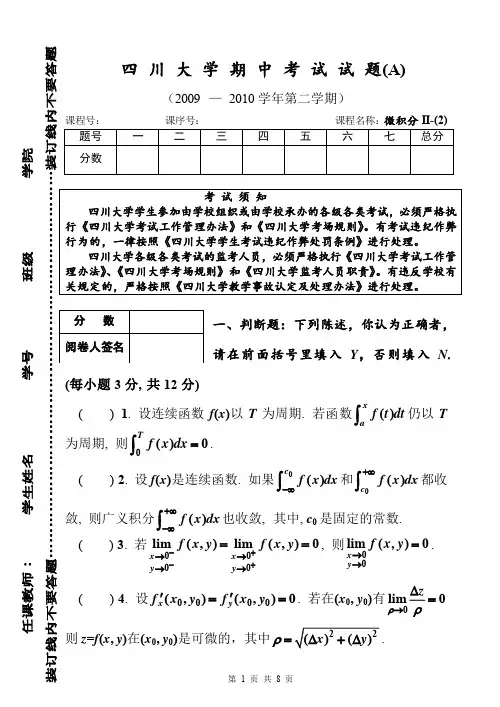 四 川 大 学 期 中 考 试 试 题(A)
(2009 — 2010学年第二学期)
课程号： 课序号： 课程名称：微积分 II-(2)
题号 一 二 三 四 五 六 七 总分
分数
考 试 须 知
四川大学学生参加由学校组织或由学校承办的各级各类考试，必须严格执
行《四川大学考试工作管理办法》和《四川大学考场规则》。有考试违纪作弊
行为的，一律按照《四川大学学生考试违纪作弊处罚条例》进行处理。
四川大学各级各类考试的监考人员，必须严格执行《四川大学考试工作管
理办法》、《四川大学考场规则》和《四川大学监考人员职责》。有违反学校有
关规定的，严格按照《四川大学教学事故认定及处理办法》进行处理。
分 数
阅卷人签名
一、判断题：下列陈述，你认为正确者，
请在前面括号里填入 Y，否则填入 N.
(每小题 3 分, 共 12 分)
( ) 1. 设连续函数 f(x)以 T 为周期. 若函数∫_a^x f(t)dt 仍以 T
为周期, 则∫_0^T f(x)dx = 0.
( ) 2. 设 f(x)是连续函数. 如果∫_{-∞}^{c₀} f(x)dx 和∫_{c₀}^{+∞} f(x)dx 都收
敛, 则广义积分∫_{-∞}^{+∞} f(x)dx 也收敛, 其中, c₀ 是固定的常数.
( ) 3. 若 lim_{x→0⁻, y→0⁻} f(x,y) = lim_{x→0⁺, y→0⁺} f(x,y) = 0, 则 lim_{x→0, y→0} f(x,y) = 0.
( ) 4. 设 f′_x(x₀,y₀) = f′_y(x₀,y₀) = 0. 若在(x₀, y₀)有 lim_{ρ→0} Δz/ρ = 0
则 z=f(x, y)在(x₀, y₀)是可微的，其中 ρ = √((Δx)² + (Δy)²).
第 1 页 共 8 页
任课教师： 学生姓名 学号 班级 学院
装订线内不要答题 装订线内不要答题